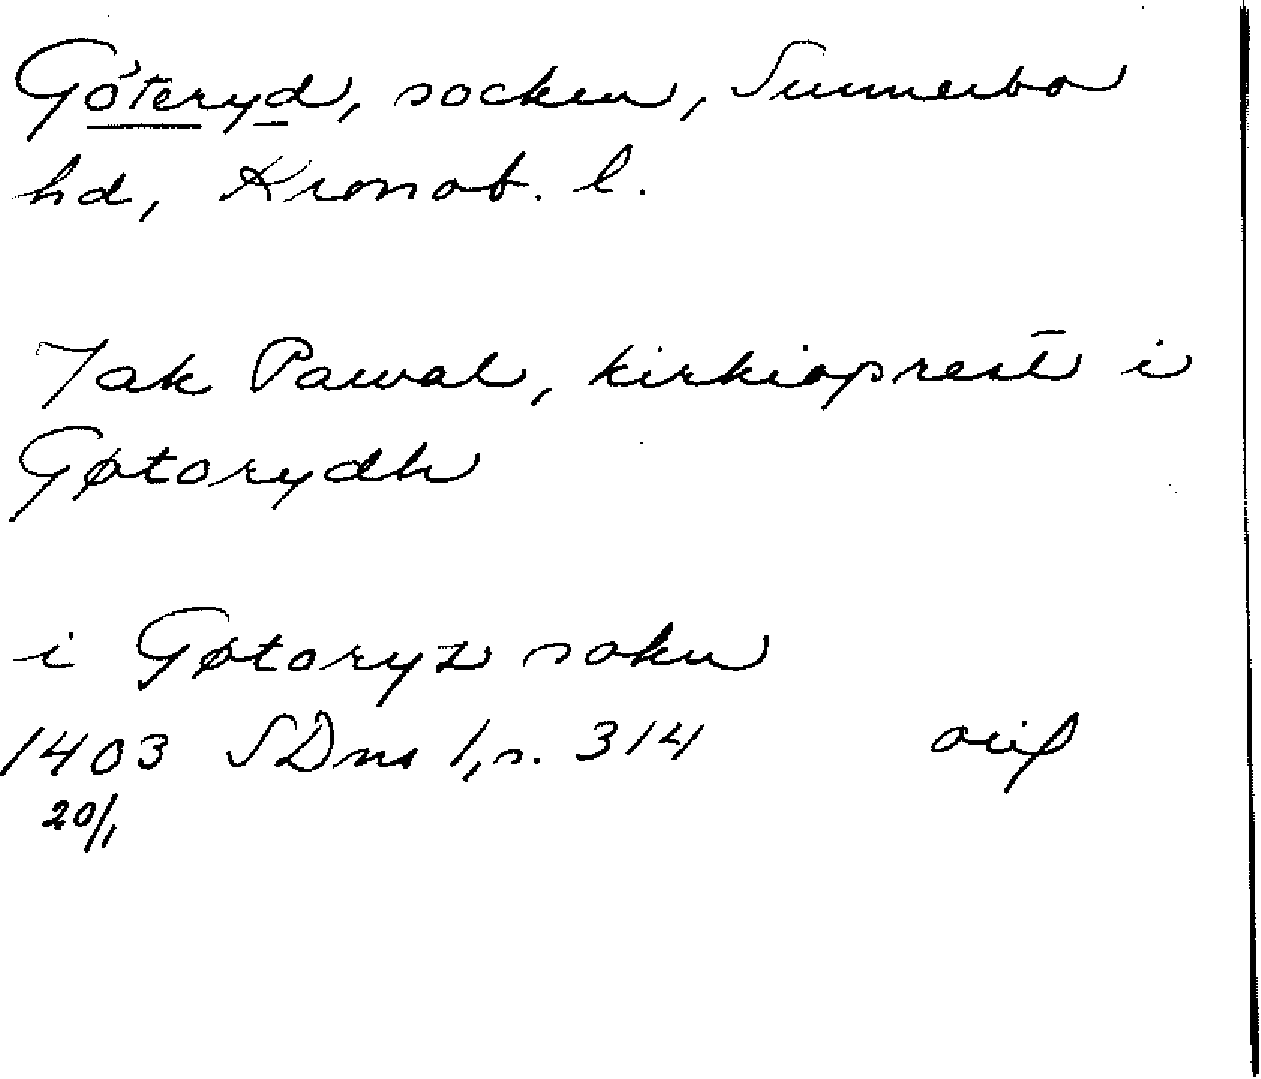 Göteryd, socken, Sunnerbo
hd, Kronob. l.
Jak Pawal, kirkioprest i
Gøtorydh
i Gøtoryz sokn
1403 SDns 1, s. 314 orig
20/1